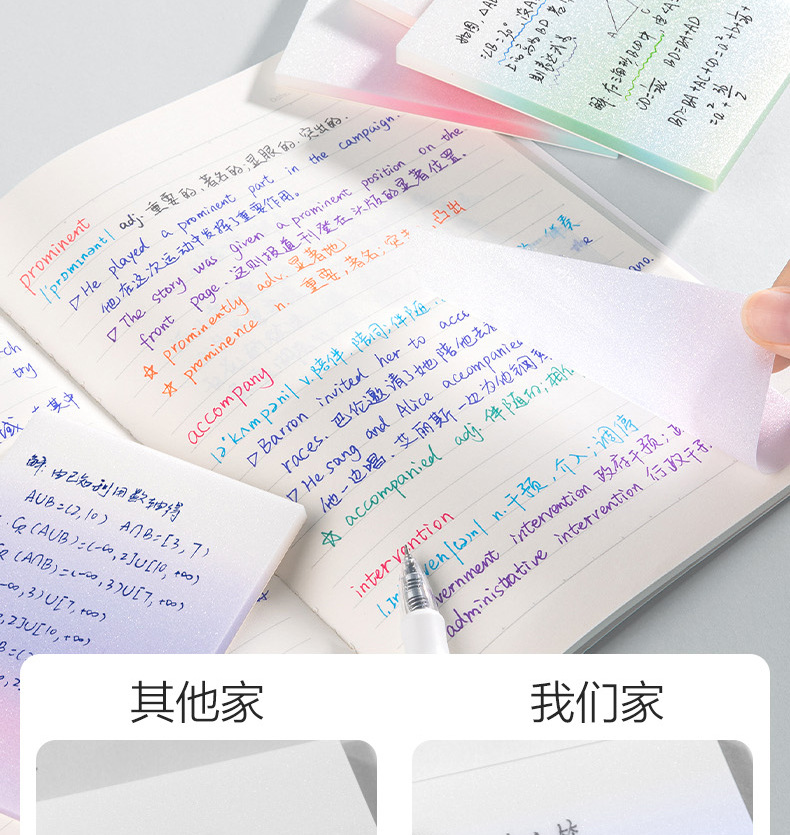 如图,△A
∠B=30°
上的高为BD
则
A
C
解:在三角形BCD中
BD=BA+AD
BD=BA+AC+CD=
prominent
|'prɒmɪnənt| adj.重要的,著名的,显眼的,突出的.
▷He played a prominent part in the campaign.
他在这次运动中发挥了重要作用。
▷The story was given a prominent position on the
front page.这则报道刊登在头版的显著位置.
☆ prominently adv.显著地
☆ prominence n. 重要,著名,突出,凸出
伴奏
the
accompany
|ə'kʌmpəni| v.陪伴,陪同;伴随
▷Barron invited her to acc
races. 巴伦邀请了她陪他去
▷He sang and Alice accompanie
他一边唱,艾丽斯一边为他钢
☆ accompanied adj. 伴随的;相
intervention
n.干预,介入;调停
vernment intervention 政府干预;
administrative intervention 行政干
ch
try
其中
解:由已知利用数轴得
A∪B=(2,10) A∩B=[3,7)
∴CR(A∪B)=(-∞,2]∪[10,+∞)
CR(A∩B)=(-∞,3)∪[7,+∞)
-∞,3)∪[7,+∞)
,2]∪[10,+∞)
其他家
我们家